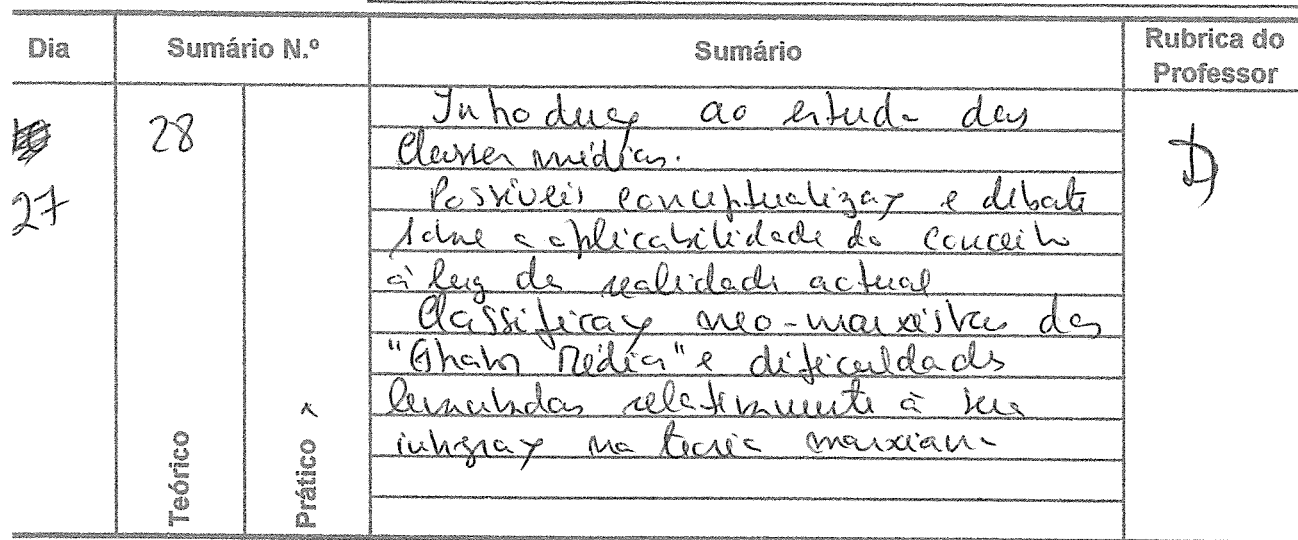 Dia Sumário N.º Sumário Rubrica do Professor
28 Introdução ao estudo das
classes médias.
27 Possíveis conceptualizaç e debate
sobre a aplicabilidade do conceito
à luz da realidade actual
Classificaç neo-marxista das
"Média" e dificuldades
levantadas relativamente à sua
integraç na teoria marxiana
Teórico Prático